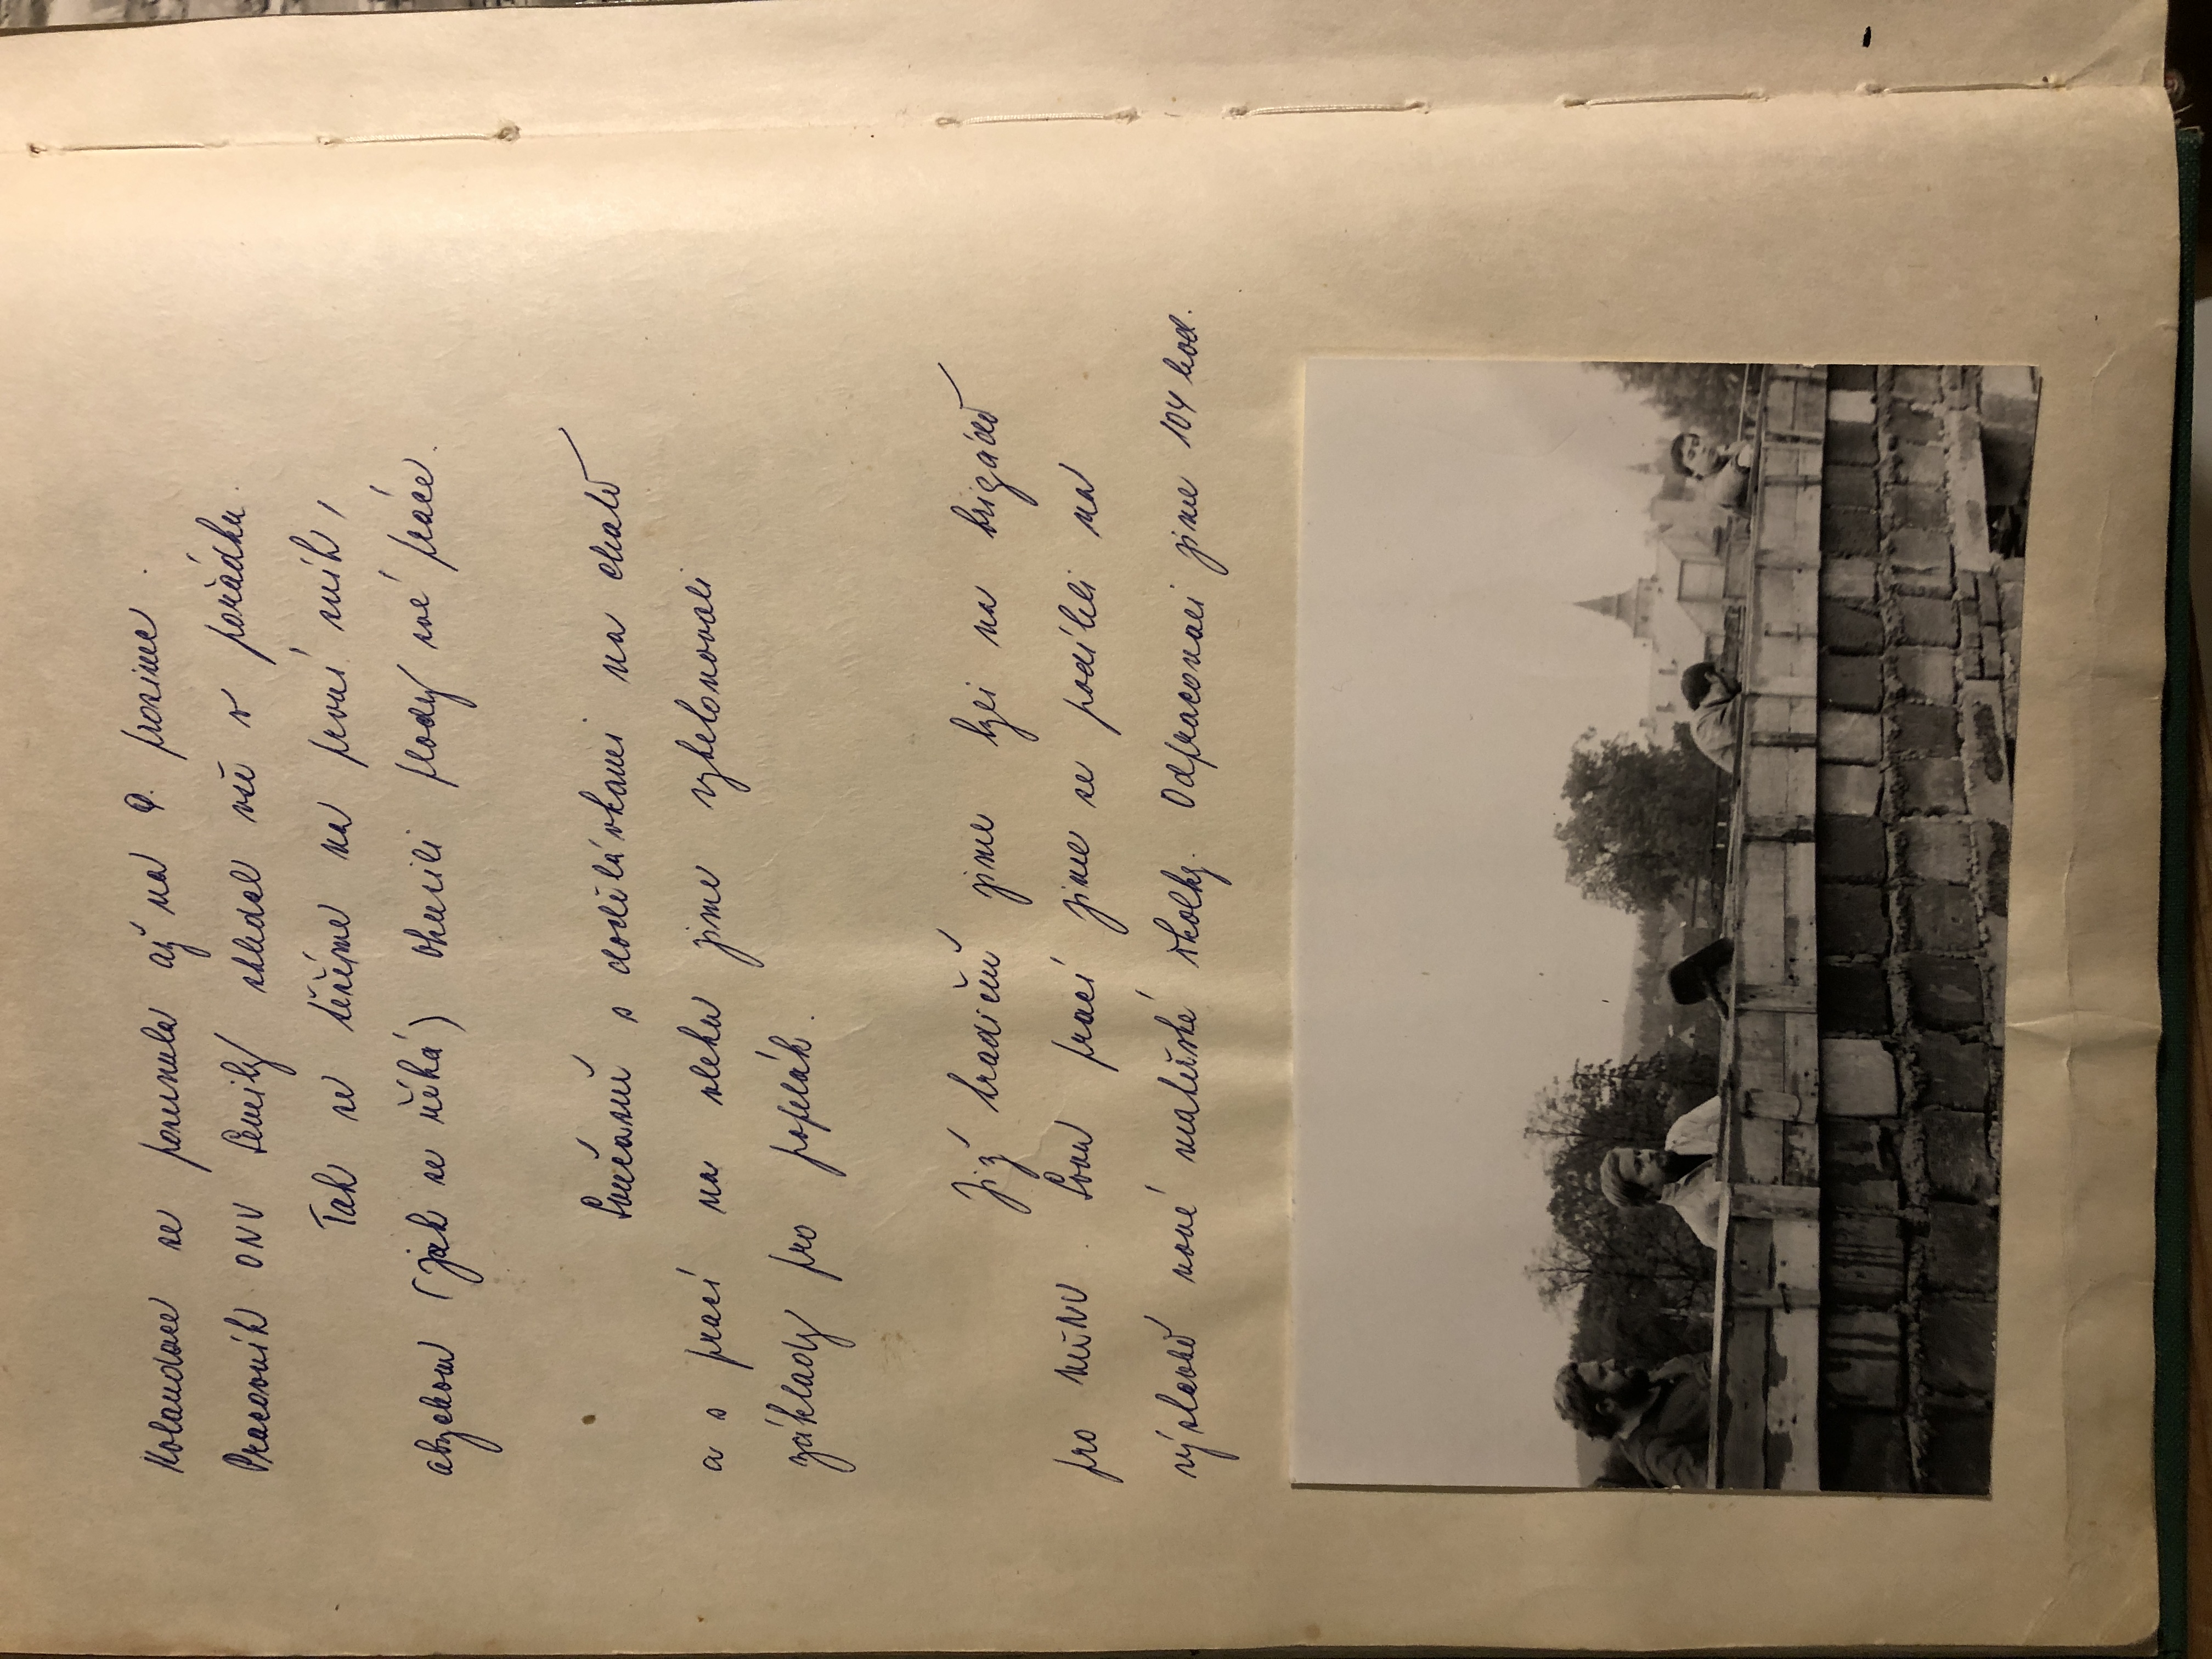 Kolaudace se posunula až na 9. prosince.
Pracovník ONV Semily shledal vše v pořádku.
Tak se těšíme na první sníh,
abychom (jak se říká) okusili plody své práce.
Současně s dodělávkami na chatě
a s prací na vleku jsme vybetonovali
základy pro popelák.
Již tradičně jsme byli na brigádě
pro MěNV. Svou prací jsme se podíleli na
výstavbě nové mateřské školky. Odpracovali jsme 104 hod.